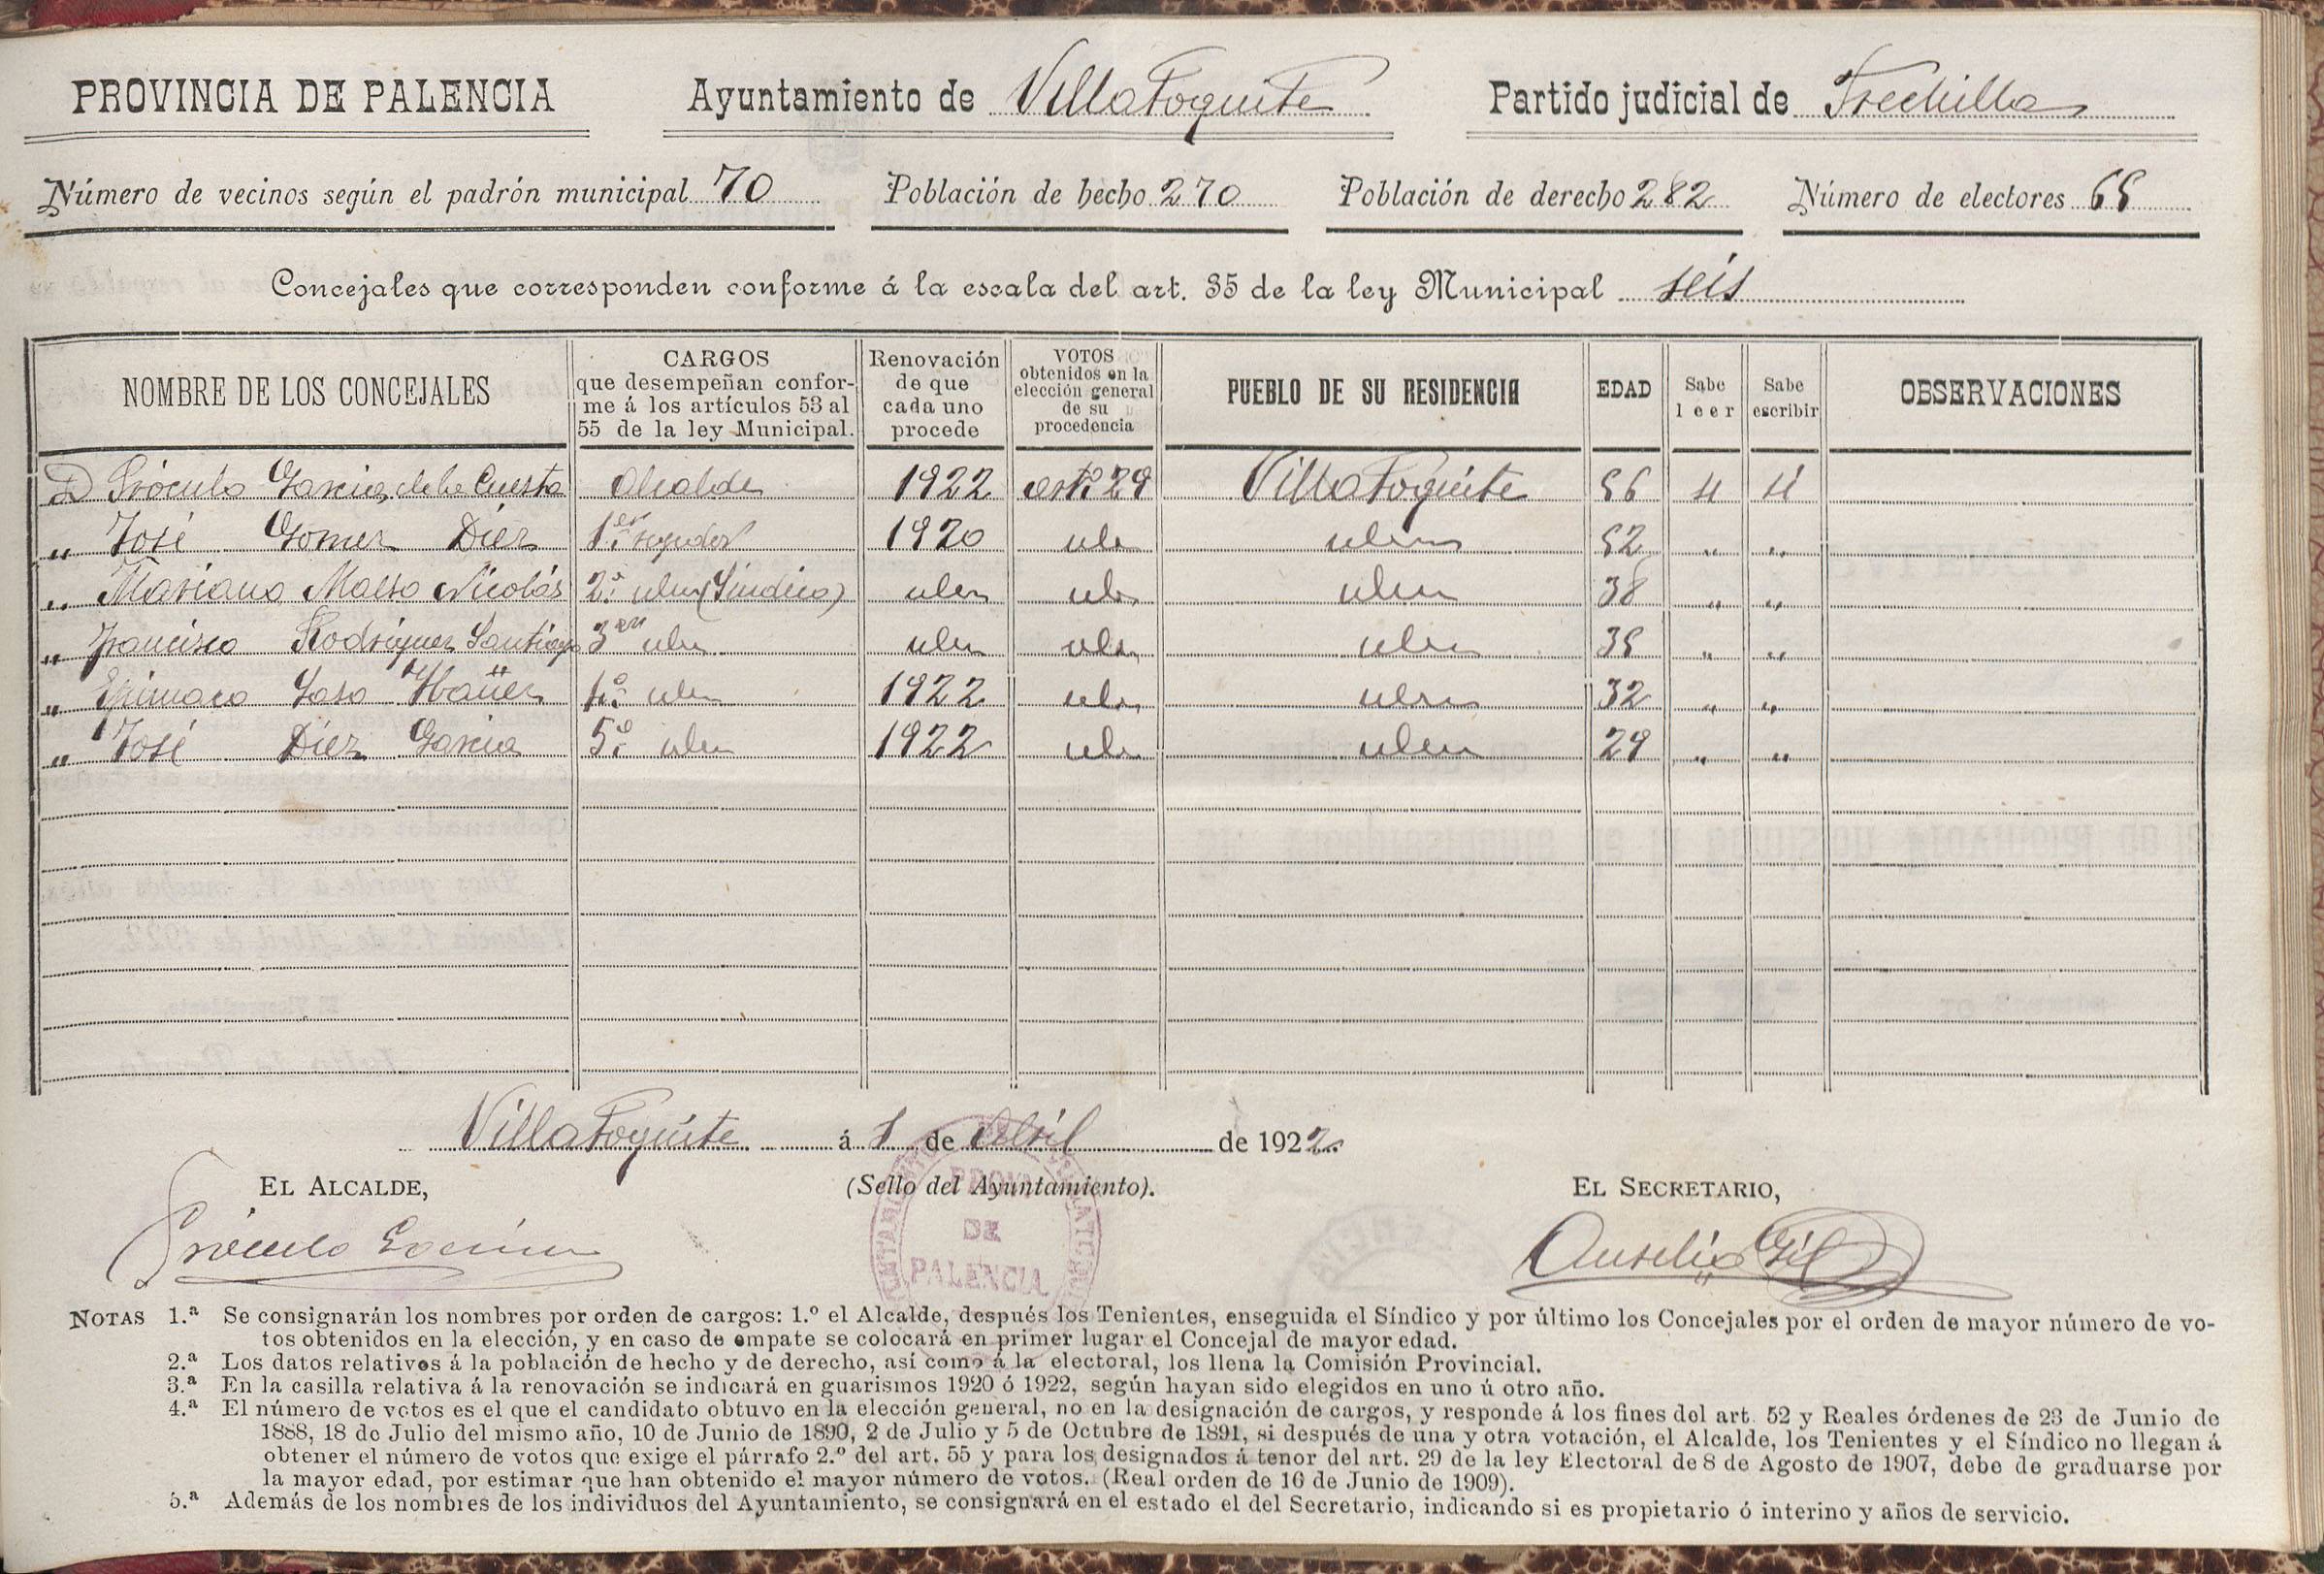 PROVINCIA DE PALENCIA Ayuntamiento de Villatoquite Partido judicial de Frechilla
Número de vecinos según el padrón municipal 70 Población de hecho 270 Población de derecho 282 Número de electores 65
Concejales que corresponden conforme á la escala del art. 35 de la ley Municipal seis
NOMBRE DE LOS CONCEJALES CARGOS que desempeñan conforme á los artículos 53 al 55 de la ley Municipal. Renovación de que cada uno procede VOTOS obtenidos en la elección general de su procedencia PUEBLO DE SU RESIDENCIA EDAD Sabe leer Sabe escribir OBSERVACIONES
D Próculo Garcia de la Cuesta Alcalde 1922 artº 29 Villatoquite 56 si si
" José Gomez Diez 1er regidor 1920 idem 52 " "
" Mariano Nicolás 2º idem (Síndico) idem idem idem 38 " "
" Francisco Rodriguez Santiago 3er idem idem idem idem 35 " "
" Epimaco Laso Ibañez 4º idem 1922 idem idem 32 " "
" José Diez Garcia 5º idem 1922 idem idem 29 " "
Villatoquite á 1 de Abril de 1922
EL ALCALDE, (Sello del Ayuntamiento). EL SECRETARIO,
Próculo García Aurelio Gil
PROVA
DE
PALENCIA
NOTAS 1.ª Se consignarán los nombres por orden de cargos: 1.º el Alcalde, después los Tenientes, enseguida el Síndico y por último los Concejales por el orden de mayor número de vo-
tos obtenidos en la elección, y en caso de empate se colocará en primer lugar el Concejal de mayor edad.
2.ª Los datos relativos á la población de hecho y de derecho, así como á la electoral, los llena la Comisión Provincial.
3.ª En la casilla relativa á la renovación se indicará en guarismos 1920 ó 1922, según hayan sido elegidos en uno ú otro año.
4.ª El número de votos es el que el candidato obtuvo en la elección general, no en la designación de cargos, y responde á los fines del art. 52 y Reales órdenes de 23 de Junio de
1888, 18 de Julio del mismo año, 10 de Junio de 1890, 2 de Julio y 5 de Octubre de 1891, si después de una y otra votación, el Alcalde, los Tenientes y el Síndico no llegan á
obtener el número de votos que exige el párrafo 2.º del art. 55 y para los designados á tenor del art. 29 de la ley Electoral de 8 de Agosto de 1907, debe de graduarse por
la mayor edad, por estimar que han obtenido el mayor número de votos. (Real orden de 16 de Junio de 1909).
5.ª Además de los nombres de los individuos del Ayuntamiento, se consignará en el estado el del Secretario, indicando si es propietario ó interino y años de servicio.